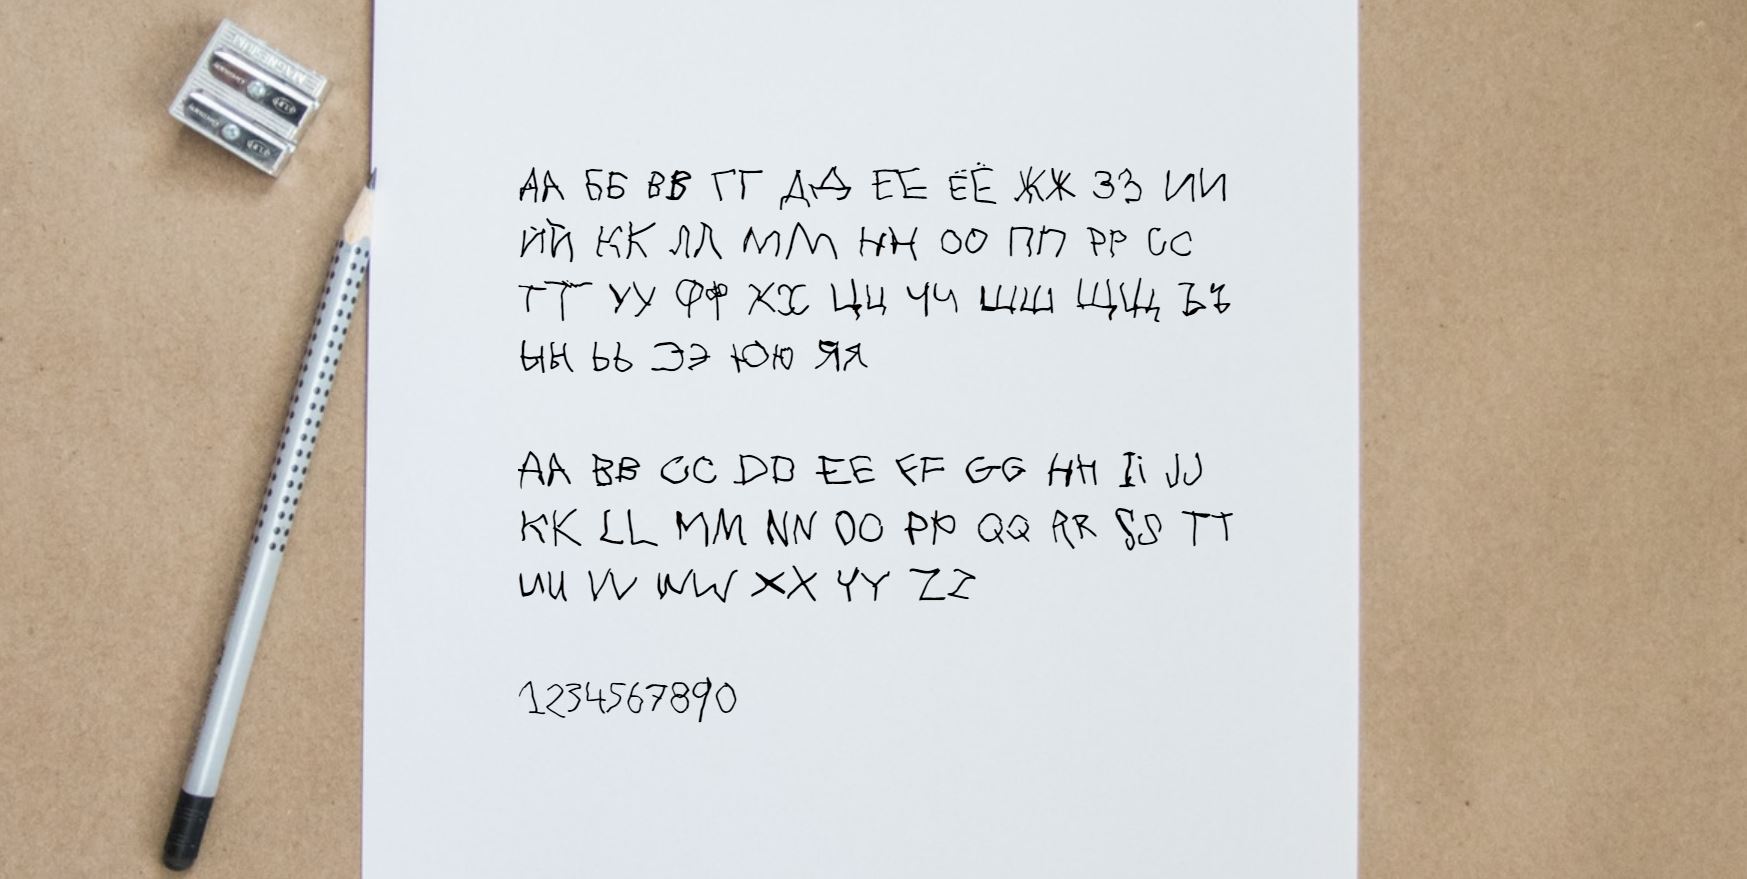 MAGNESIUM
АА ББ ВВ ГГ ДД ЕЕ ЁЁ ЖЖ ЗЗ ИИ
ЙЙ КК ЛЛ ММ НН ОО ПП РР СС
ТТ УУ ФФ ХХ ЦЦ ЧЧ ШШ ЩЩ ЪЪ
ЫЫ ЬЬ ЭЭ ЮЮ ЯЯ
AA BB CC DD EE FF GG HH Ii JJ
KK LL MM NN OO PP QQ RR SS TT
UU VV WW XX YY ZZ
1234567890